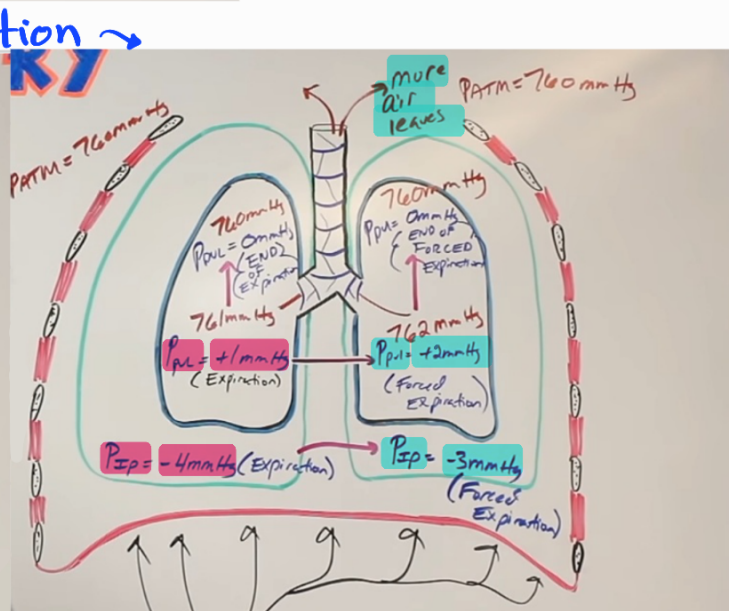 tion
RY
more
air
leaves
PATM = 760mmHg
PATM = 760mmHg
760mmHg
Ppul = 0mmHg
(END
OF
Expiration
761mmHg
Ppul = +1mmHg
(Expiration)
760mmHg
Ppul = 0mmHg
(END OF
FORCED
Expiration
762mmHg
Ppul = +2mmHg
(Forced
Expiration)
PIP = -4mmHg (Expiration)
PIP = -3mmHg
(Forced
Expiration)